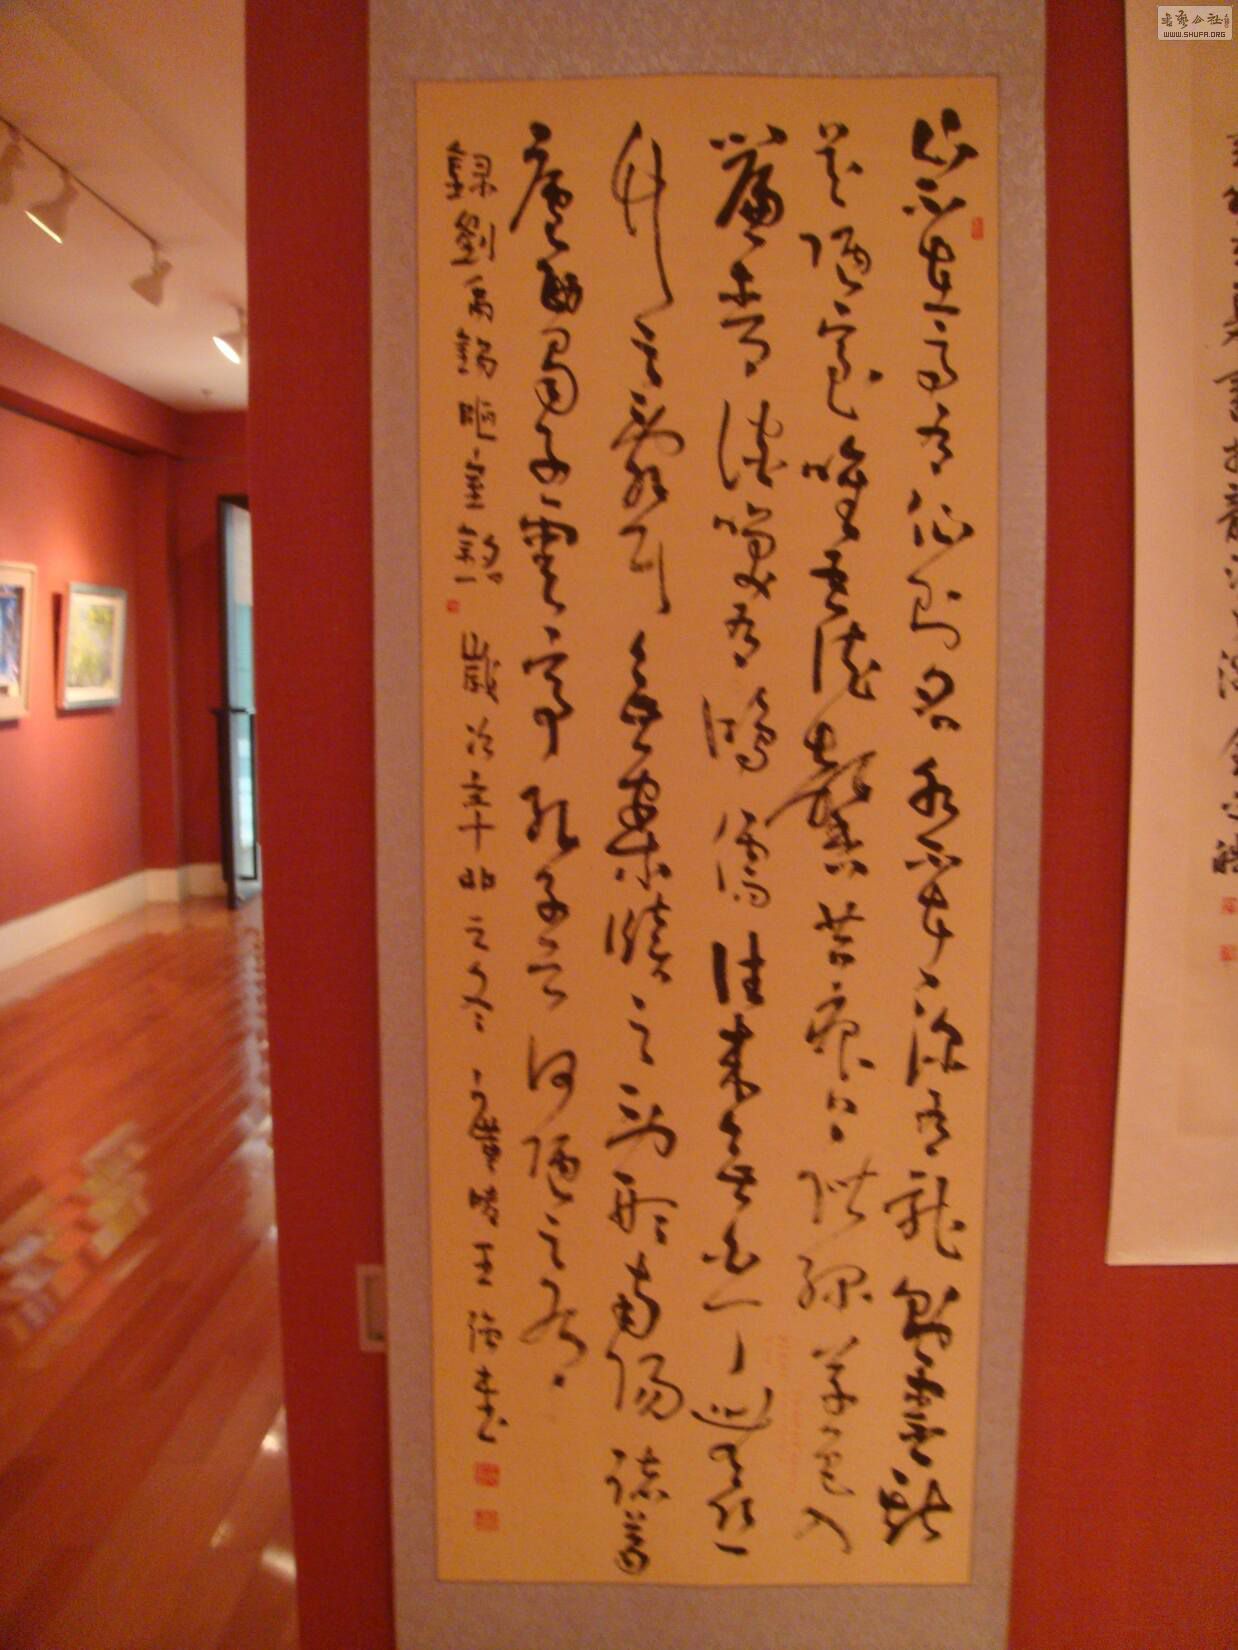 山不在高有仙則名水不在深有龍則靈斯
是陋室唯吾德馨苔痕上階綠草色入
簾青談笑有鴻儒往來無白丁無絲
竹之亂耳無案牘之勞形南陽諸葛
廬西蜀子雲亭孔子云何陋之有
錄劉禹錫陋室銘 歲次辛卯之冬 廣陵王強書
書藝公社
WWW.SHUFA.ORG